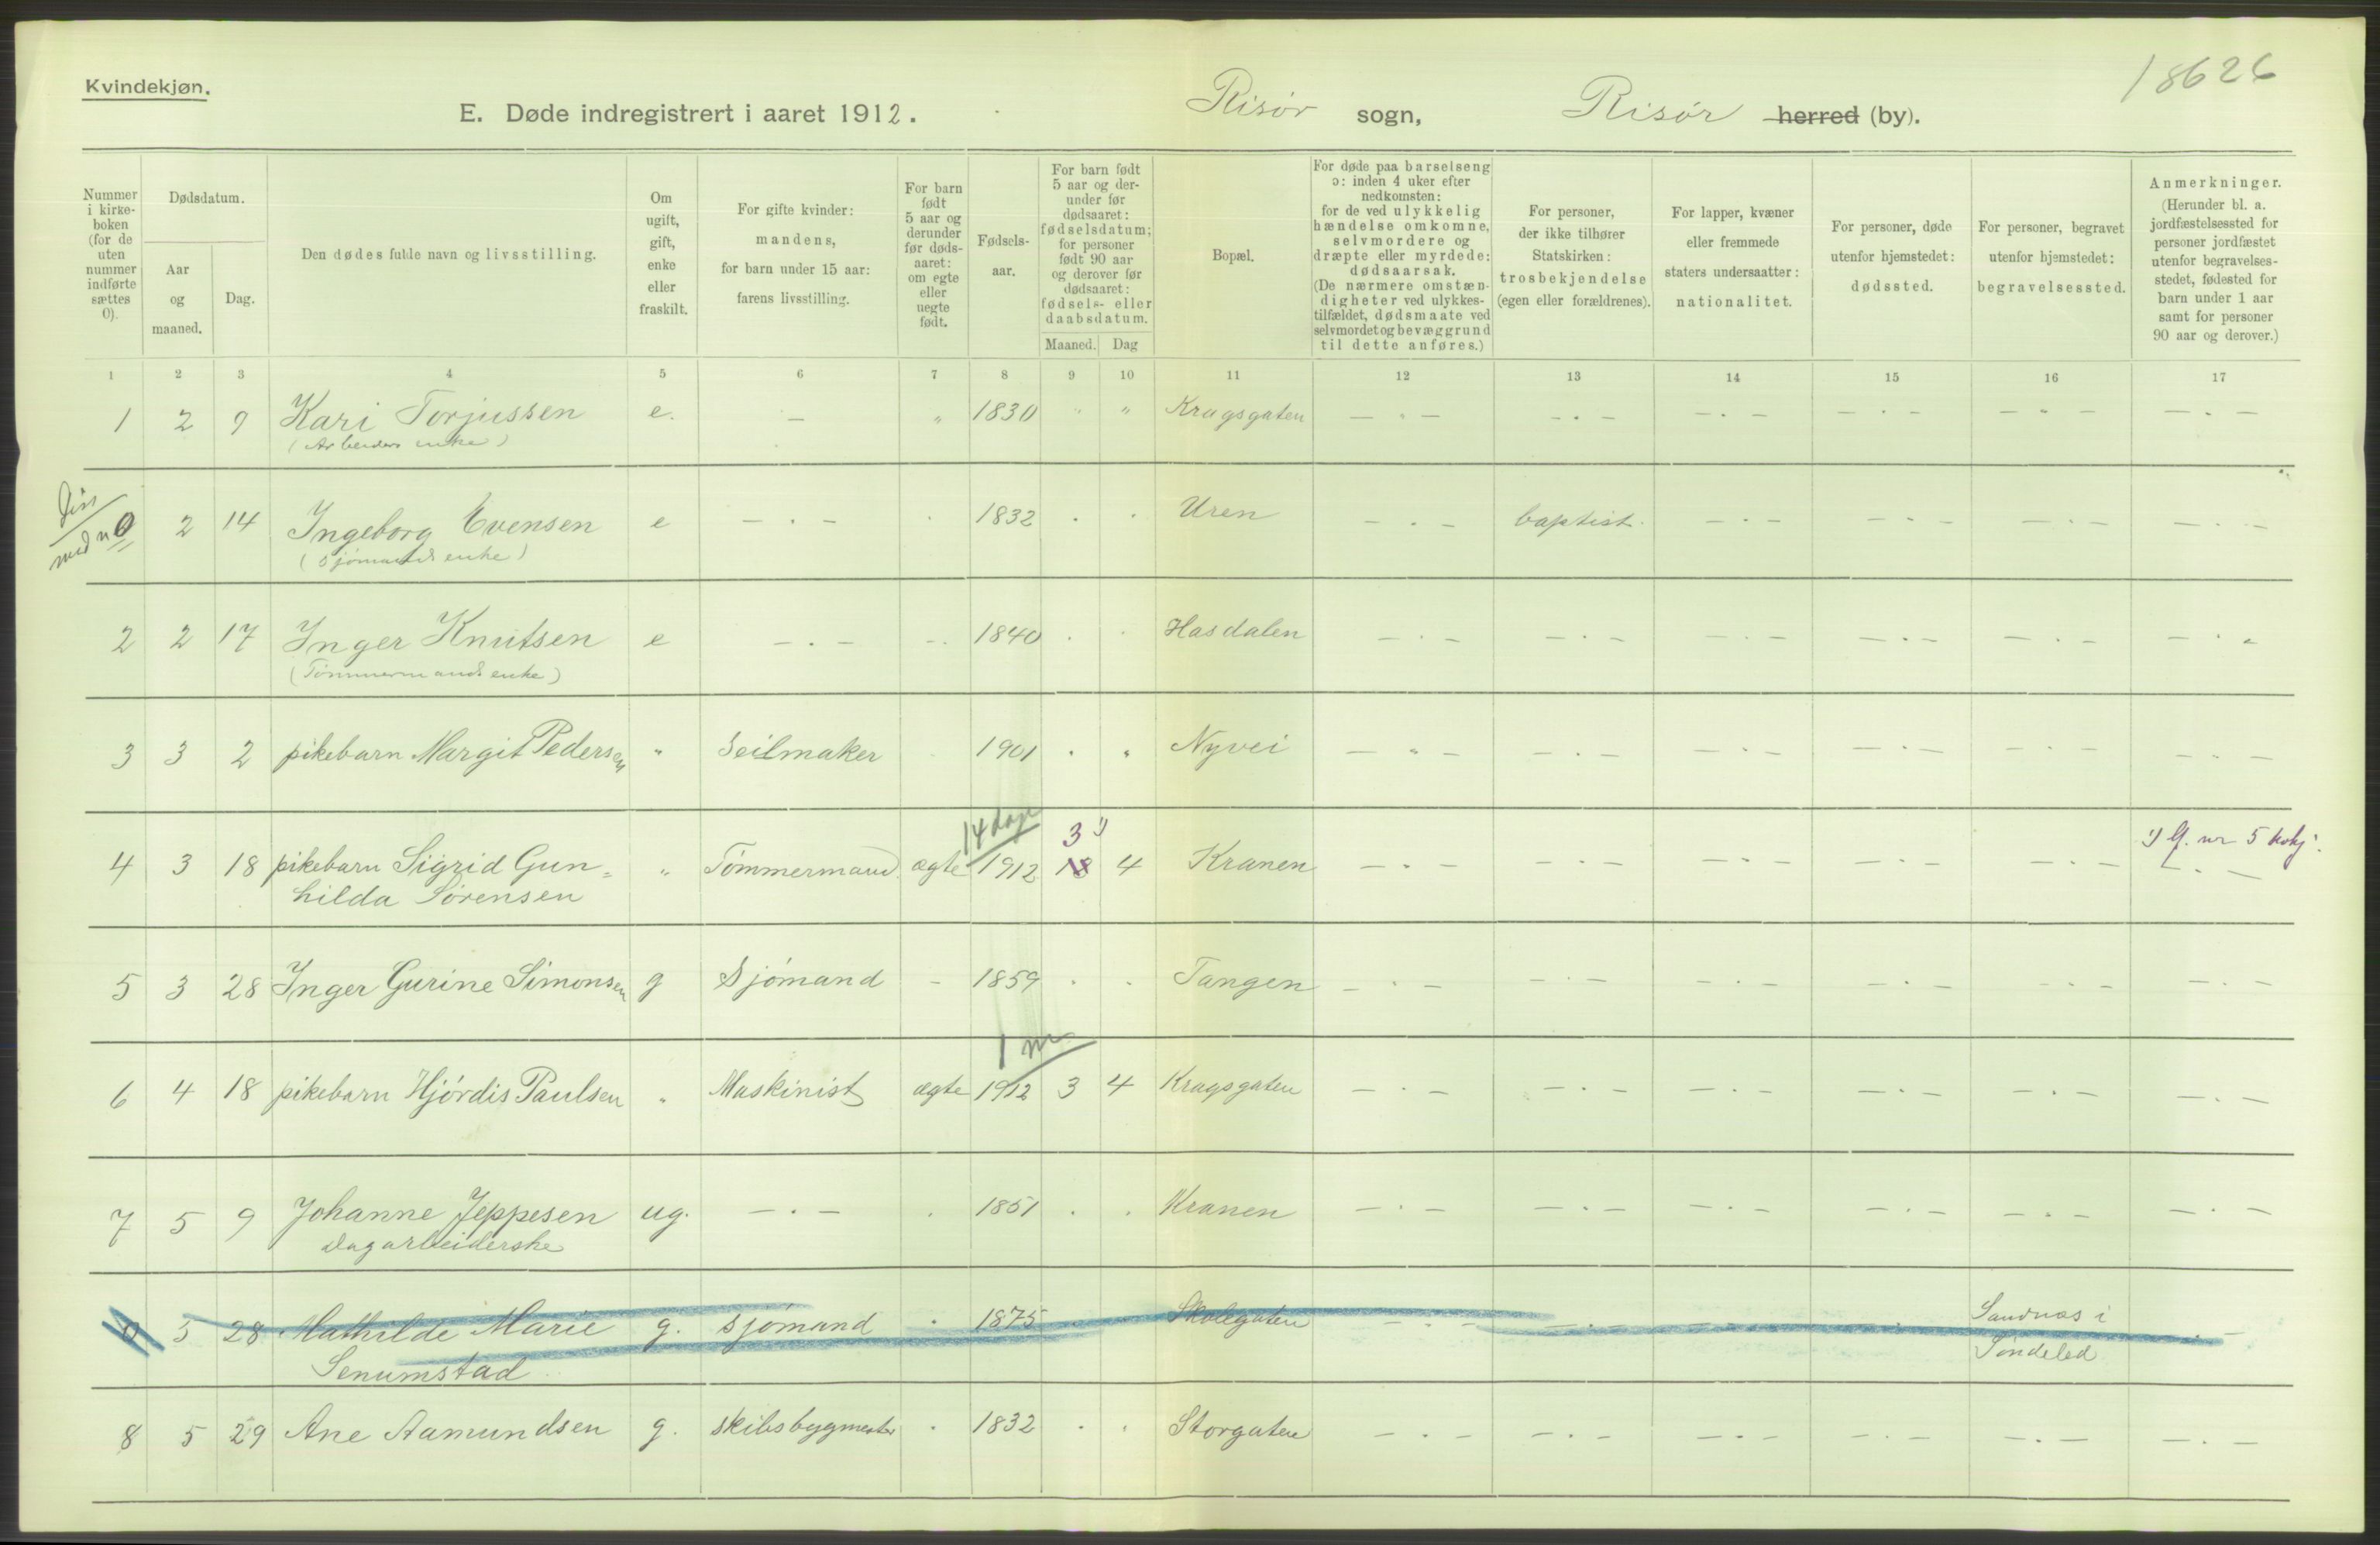 Kvindekjøn.
18626
E. Døde indregistrert i aaret 1912. Risør sogn, Risør herred (by).
Nummer i kirke-boken (for de uten nummer indførte sættes 0).
Dødsdatum.
Aar og maaned.
Dag.
Den dødes fulde navn og livsstilling.
Om ugift, gift, enke eller fraskilt.
For gifte kvinder: mandens, for barn under 15 aar: farens livsstilling.
For barn født 5 aar og derunder før døds-aaret: om egte eller uegte født.
Fødsels-aar.
For barn født 5 aar og der-under før dødsaaret: fødselsdatum; for personer født 90 aar og derover før dødsaaret: fødsels- eller daabsdatum.
Maaned. Dag
Bopæl.
For døde paa barselseng ɔ: inden 4 uker efter nedkomsten: for de ved ulykkelig hændelse omkomne, selvmordere og dræpte eller myrdede: dødsaarsak. (De nærmere omstæn-digheter ved ulykkes-tilfældet, dødsmaate ved selvmordet og bevæggrund til dette anføres.)
For personer, der ikke tilhører Statskirken: trosbekjendelse (egen eller forældrenes).
For lapper, kvæner eller fremmede staters undersaatter: nationalitet.
For personer, døde utenfor hjemstedet: dødssted.
For personer, begravet utenfor hjemstedet: begravelsessted.
Anmerkninger. (Herunder bl. a. jordfæstelsessted for personer jordfæstet utenfor begravelses-stedet, fødested for barn under 1 aar samt for personer 90 aar og derover.)
1 2 3 4 5 6 7 8 9 10 11 12 13 14 15 16 17
1 2 9 Kari Torjussen e. — „ 1830 „ „ Kragsgaten — . — — . — — . — — . — — . — — . —
(Arbeiders enke)
0 2 14 Ingeborg Evensen e — . — . 1832 . . Uren — . — baptist. — . — — . — — . — — . —
(Sjømands enke)
2 2 17 Inger Knutsen e — . — 1840 . . Hasdalen — . — — . — — . — — . — — . — — . —
(Tømmermands enke)
3 3 2 pikebarn Margit Pedersen „ Seilmaker 1901 . „ Nyvei — „ — — . — — . — — . — — . — — . —
14 dage 3 1) 1) 
4 3 18 pikebarn Sigrid Gun= „ Tømmermand ægte 1912 18 4 Kranen — . — — . — — . — — . — — . — — . —
hilda Sørensen
5 3 28 Inger Gurine Simonsen g Sjømand - 1859 . . Tangen — . — — . — — . — — . — — . — — . —
1 m
6 4 18 pikebarn Hjørdis Paulsen „ Maskinist ægte 1912 3 4 Kragsgaten — . — — . — — . — — . — — . — — . —
7 5 9 Johanne Jeppesen ug. — . — . 1851 . . Kranen — . — — . — — . — — . — — . — — . —
Dagarbeiderske
0 5 28 Mathilde Marie g. sjømand . 1875 . . Skolegaten — . — — . — — . — — . — Sandnæs i — . —
Senumstad Søndeled
8 5 29 Ane Aamundsen g. skibsbygmester . 1832 . . Storgaten — . — — . — — . — — . — — . — — . —